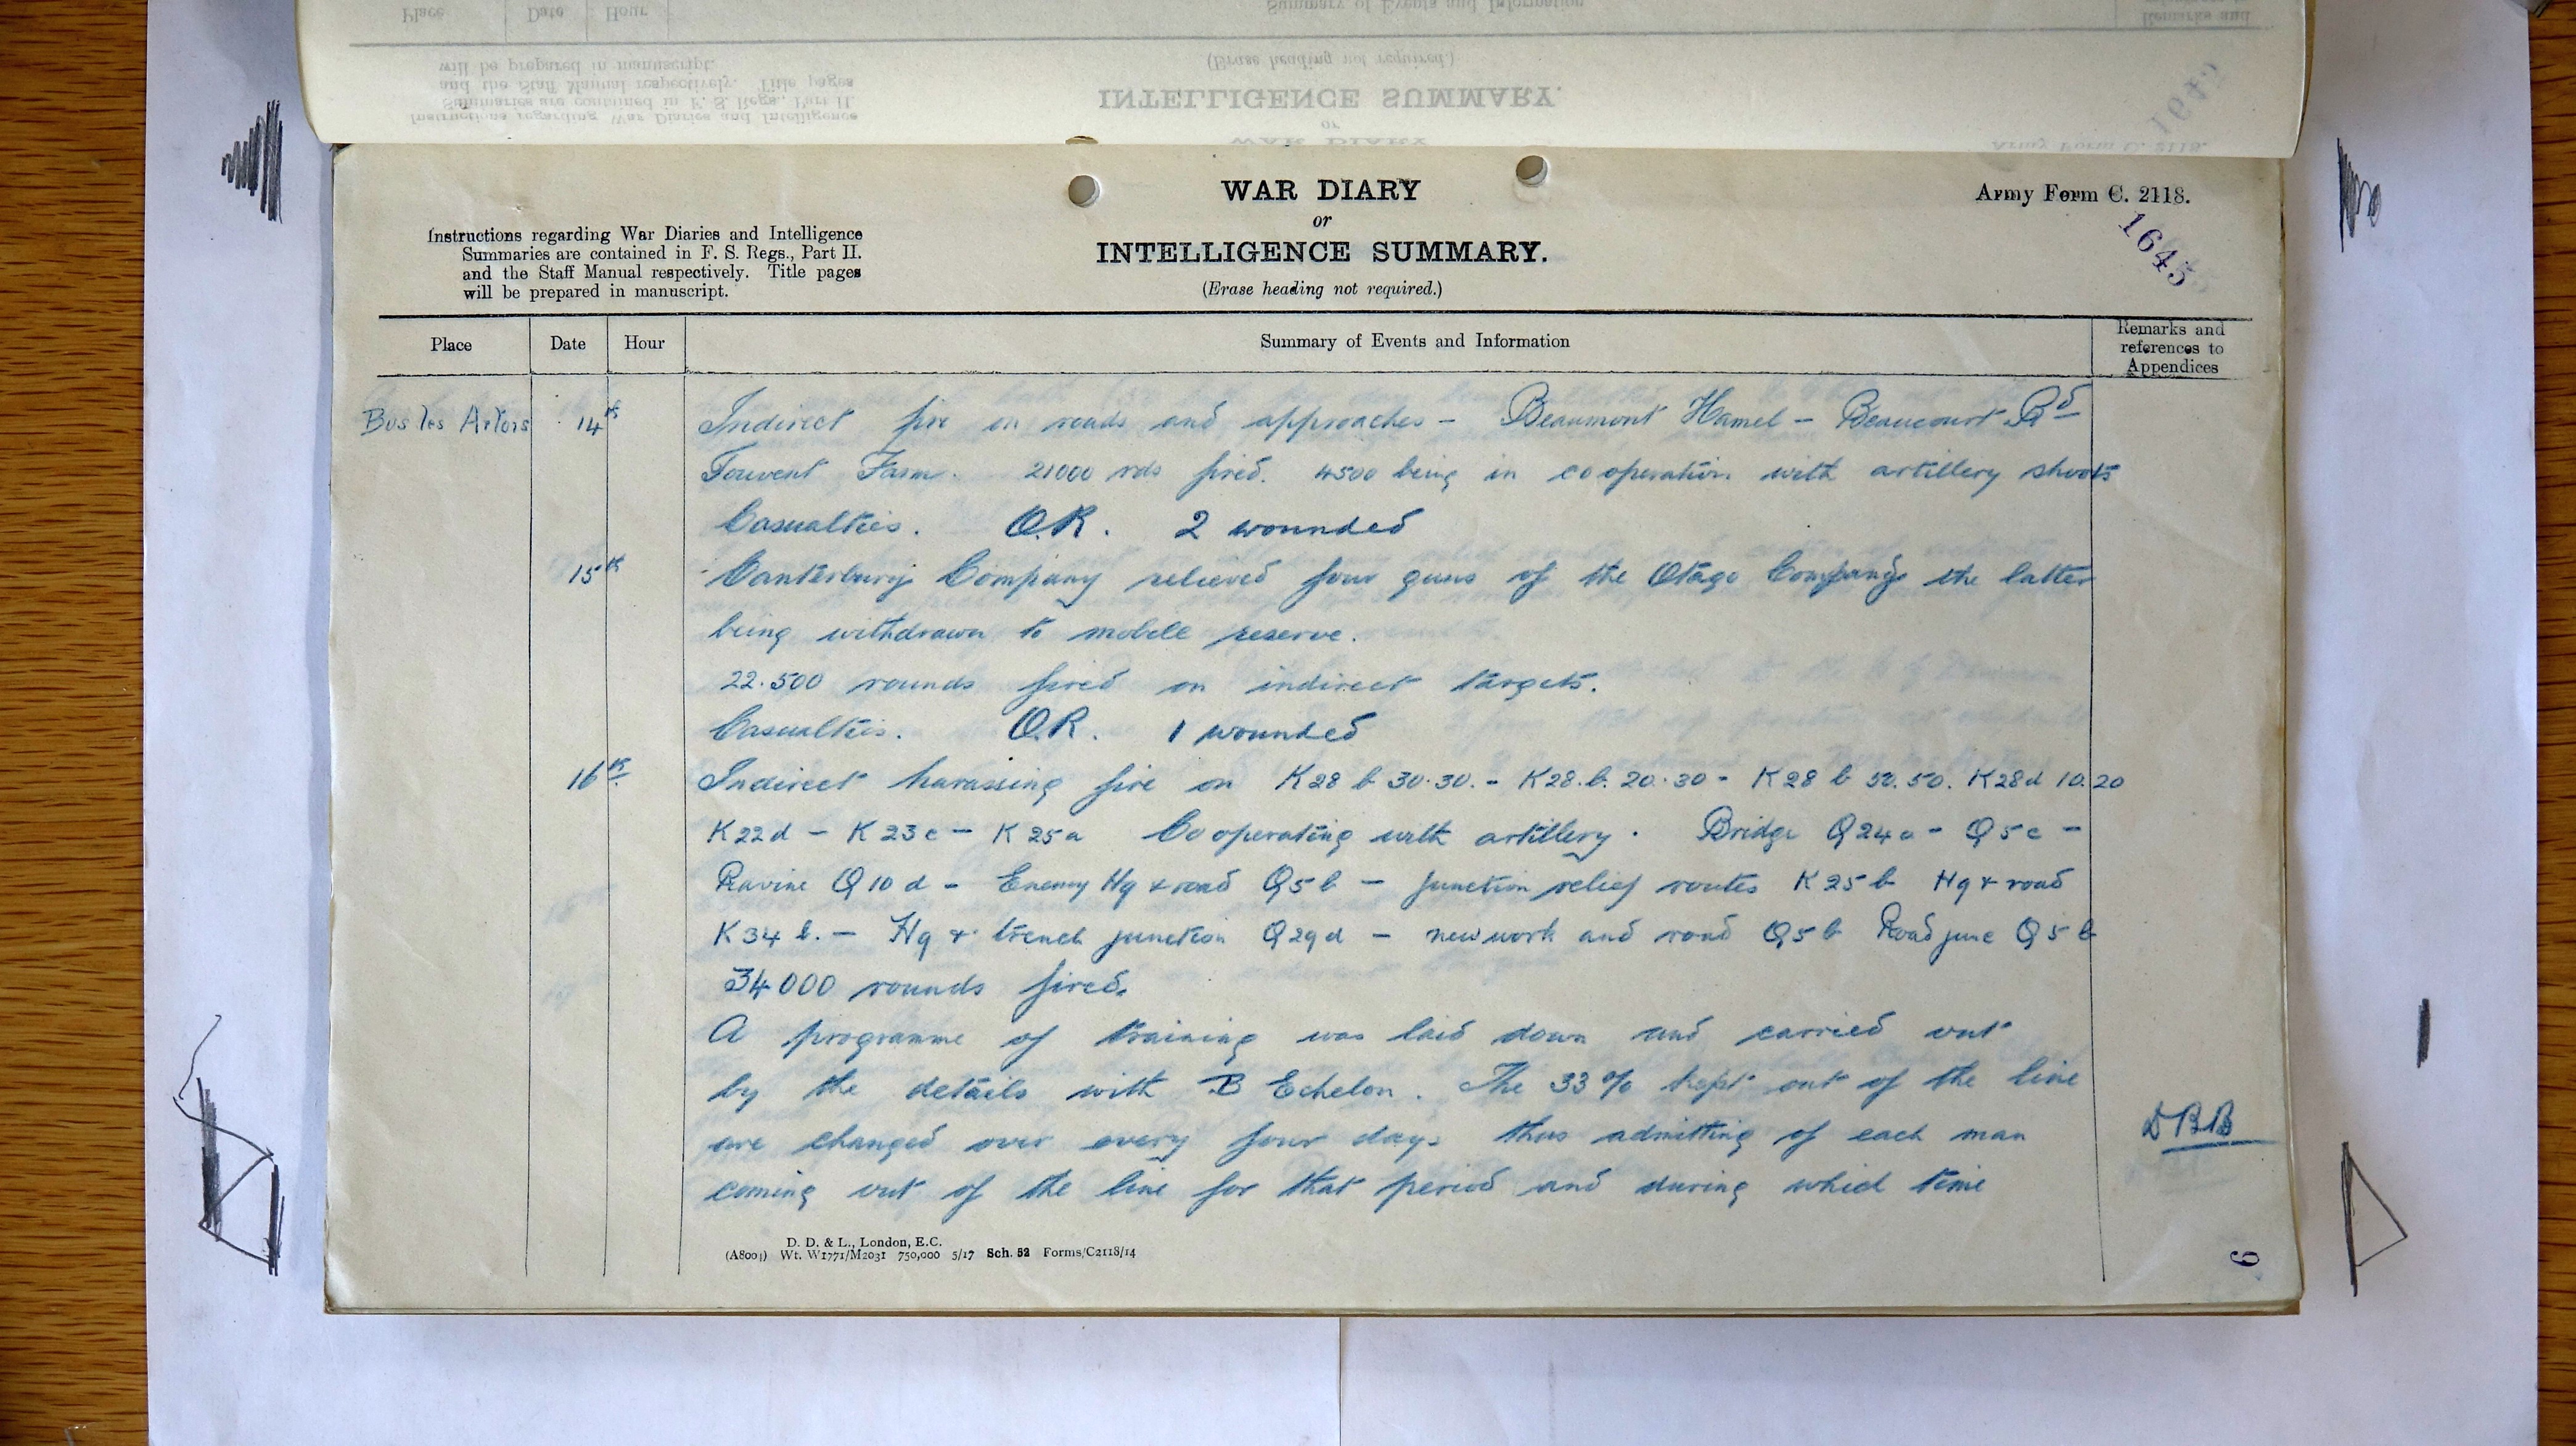 Place Date Hour Summary of Events and Information Remarks and
(Erase heading not required.)
Instructions regarding War Diaries and Intelligence
Summaries are contained in F. S. Regs., Part II.
and the Staff Manual respectively. Title pages
will be prepared in manuscript.
INTELLIGENCE SUMMARY.
or
WAR DIARY
Army Form C. 2118.
WAR DIARY
or
INTELLIGENCE SUMMARY.
(Erase heading not required.)
Army Form C. 2118.
1645
Instructions regarding War Diaries and Intelligence
Summaries are contained in F. S. Regs., Part II.
and the Staff Manual respectively. Title pages
will be prepared in manuscript.
Place Date Hour Summary of Events and Information Remarks and
references to
Appendices
Bus les Artois 14th Indirect fire on roads and approaches - Beaumont Hamel - Beaucourt Rd
Touvent Farm. 21000 rds fired. 4500 being in cooperation with artillery shoots
Casualties. O.R. 2 wounded
15th Canterbury Company relieved four guns of the Otago Company the latter
being withdrawn to mobile reserve.
22.500 rounds fired on indirect targets.
Casualties. O.R. 1 wounded
16th Indirect harassing fire on K28 b 30.30. - K28.b. 20.30 - K28 b 50.50. K28d 10.20
K22d - K23c - K25a Cooperating with artillery. Bridge Q24a - Q5c -
Ravine Q10d - Enemy Hq & road Q5b - Junction relief routes K25b Hq & road
K34b. - Hq & trench junction Q29d - new work and road Q5b Road junc Q5b
34000 rounds fired.
A programme of training was laid down and carried out
by the details with B Echelon. The 33% kept out of the line
are changed over every four days thus admitting of each man
coming out of the line for that period and during which time
DBB
D. D. & L., London, E.C.
(A8001) Wt. W1771/M2031 750,000 5/17 Sch. 52 Forms/C2118/14
6